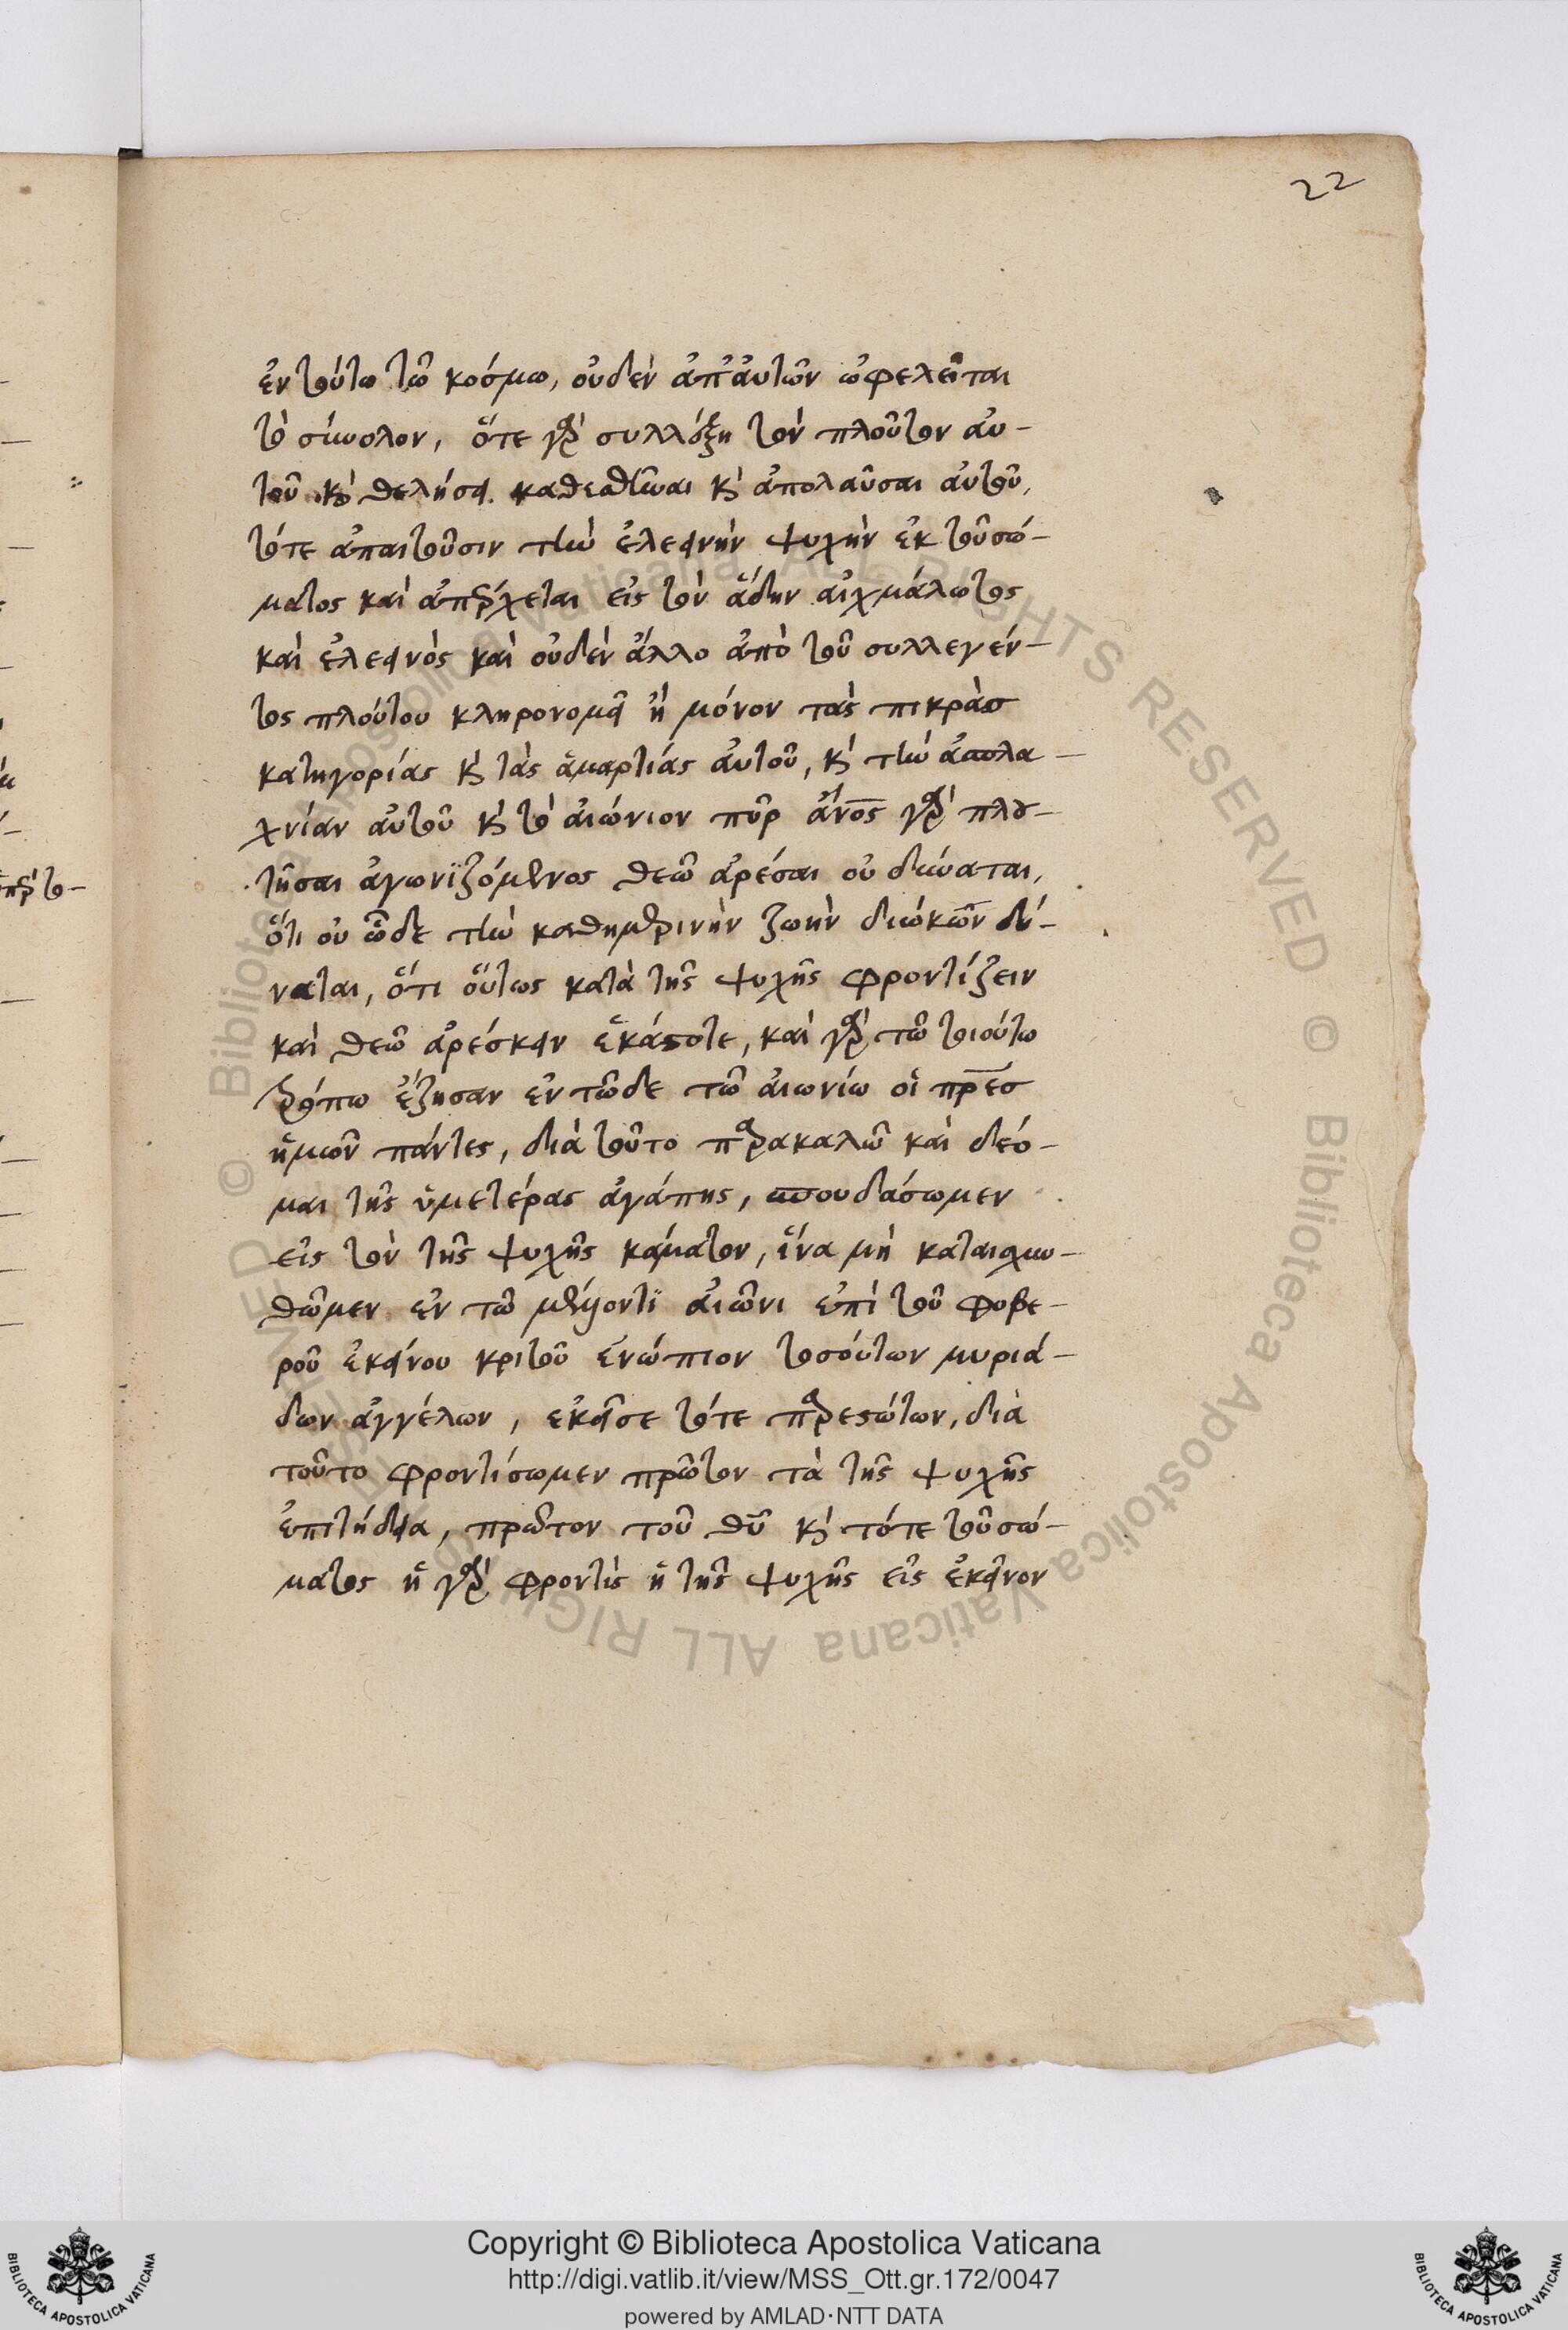 22
ἐν τούτω τῶ κόσμω, οὐδὲν ἀπ' ἀυτῶν ὠφελεῖται
τὸ σύνολον, ὅτε γὰρ συλλέξη τὸν πλοῦτον ἀυ-
τοῦ κỳ θελήσει καθεσθῆναι κỳ ἀπολαῦσαι αὐτοῦ,
τότε ἀπαιτοῦσιν τὴν ἐλεεινὴν ψυχὴν ἐκ τοῦ σώ-
ματος καὶ ἀπέρχεται εἰς τὸν ἅδην αἰχμάλωτος
καὶ ἐλεεινὸς καὶ οὐδὲν ἄλλο ἀπὸ τοῦ συλλεγέν-
τος πλούτου κληρονομεῖ ἢ μόνον τὰς πικρὰσ
κατηγορίας κỳ τὰς ἁμαρτίας ἀυτοῦ, κỳ τὴν ἀσπλα-
χνίαν αὐτοῦ κỳ τὸ αἰώνιον πῦρ ἄνος γὰρ πλου-
τῆσαι ἀγωνϊζόμενος θεῶ ἀρέσαι οὐ δύναται,
ὅτι οὐ ὧδε τὴν καθημερινὴν ζωὴν διώκων δύ-
ναται, ὅτι οὕτως κατὰ τῆς ψυχῆς φροντίζειν
καὶ θεῶ ἀρέσκειν ἑκάστοτε, καὶ γὰρ τῶ τοιούτω
τρόπω ἔζησαν ἐν τῶδε τῶ αἰωνίω οἱ πρεσ
ἡμῶν πάντες, διὰ τοῦτο παρακαλῶ καὶ δέο-
μαι τῆς ὑμετέρας ἀγάπης, σπουδάσωμεν
εἰς τὸν τῆς ψυχῆς κάματον, ἵνα μὴ καταισχυν-
θῶμεν ἐν τῶ μέλλοντϊ αἰῶνι ἐπὶ τοῦ φοβε-
ροῦ ἐκείνου κριτοῦ ἐνώπιον τοσούτων μυριά-
δων ἀγγέλων, ἐκεῖσε τότε παρεστώτων, διὰ
τοῦτο φροντίσωμεν πρῶτον τὰ τῆς ψυχῆς
ἐπιτήδεια, πρῶτον τοῦ θῦ κỳ τότε τοῦ σώ-
ματος ἡ γὰρ φροντὶς ἡ τῆς ψυχῆς εἰς ἐκεῖνον
Copyright © Biblioteca Apostolica Vaticana
http://digi.vatlib.it/view/MSS_Ott.gr.172/0047
powered by AMLAD·NTT DATA